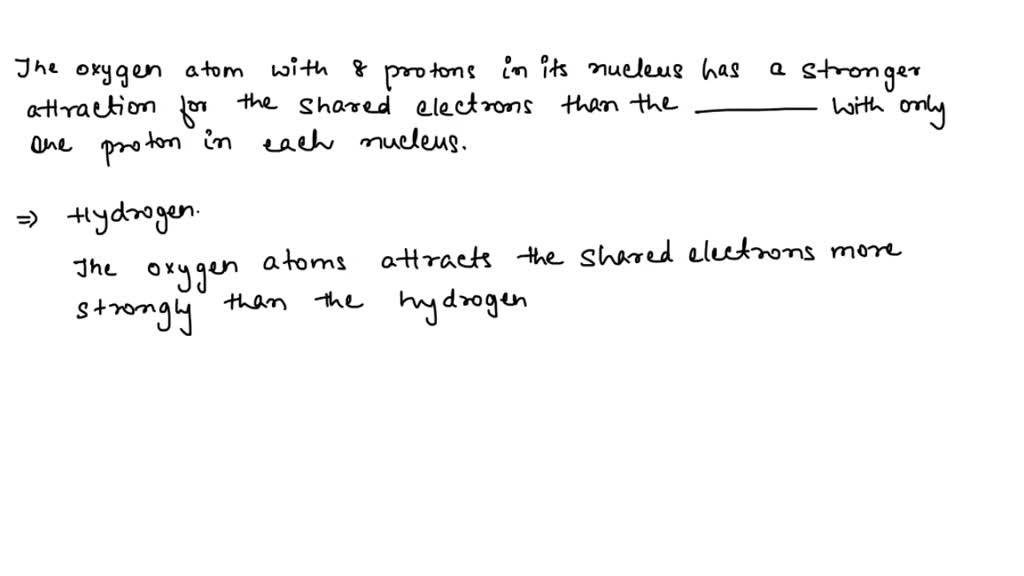 The oxygen atom with 8 protons in its nucleus has a stronger
attraction for the shared electrons than the ________ with only
one proton in each nucleus.
⇒ Hydrogen.
The oxygen atoms attracts the shared electrons more
strongly than the hydrogen